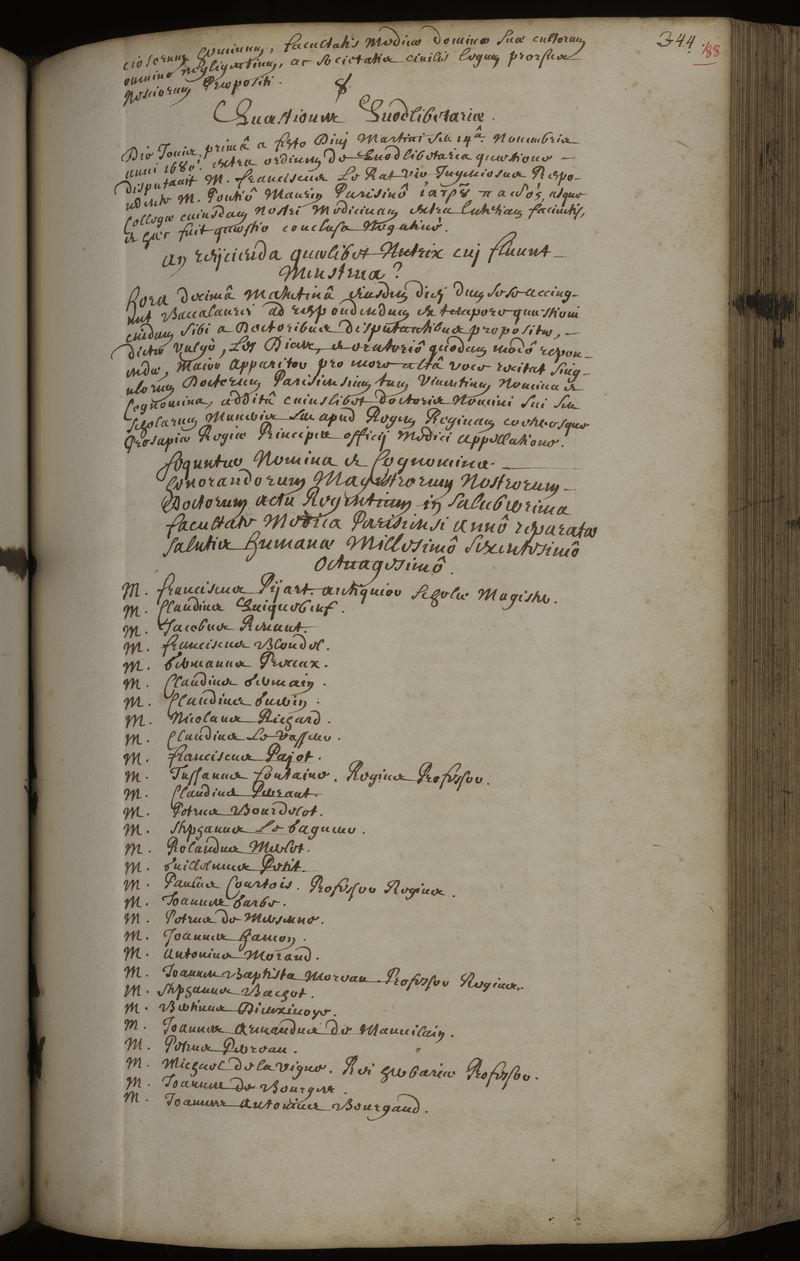 344.
188
ciosorum hominum, facultatis Medicæ dominæ suæ cultorum
omnino negligentium, ac societatis civilis legum prorsus
nesciorum Propositi.
Quæstiones Quodlibetariæ.
Die Jovis, primâ a festo Divi Martini seu 14â. Novembris
anni 1680. extra ordinem de Quodlibetaria quæstione
disputavit M. Franciscus Le Rat vir Ingeniosus Respo-
ndente M. Pontiô Maurin Parisinô ἰατρῦ παιδός, atque
Collegæ cuiusdam nostri Medicinam extra Lutetiam facientis,
et hæc fuit quæstio conclusa Negativè.
An rejicienda quælibet Nutrix cui fluunt
Menstrua?
Hora decimâ Matutinâ eiusdem diei dum sese accing-
unt Baccalaurei ad respondendum ex tempore quæstioni
cuidam sibi a Doctoribus disputantibus propositæ,
dictæ vulgò, Los Diane, et oratoriô quodam modô respon-
endæ, Maior Apparitor pro more altâ voce recitat sing-
ulorum Doctorum Parisiensium tum Viventium Nomina et
Cognomina, additâ cuiuslibet doctoris Nomini sui seu
scholarum Muneris seu apud Regem Reginam cœterosque
Prosapiæ Regiæ Principes officij Medici Appellatione.
Sequntur Nomina et Cognomina
honorandorum Magistrorum Nostrorum
Doctorum actu Regentium in saluberrima
facultate Medica Parisiensi Annô reparatæ
salutis humanæ Millesimô Sexentesimô
Octuagesimô.
M. Franciscus Pijart antiquior scholæ Magister.
M. Claudius Quiquebeuf.
M. Jacobus Renaut.
M. Franciscus Blondel.
M. Germanus Preaux.
M. Claudius Germain.
M. Claudius Guerin.
M. Nicolaus Richard.
M. Claudius Le Vasseur.
M. Franciscus Pajot.
M. Tussanus Fontaine. Regius Professor.
M. Claudius Perraut
M. Petrus Bourdelot.
M. Stephanus Le Gagneur.
M. Rolandus Merlet.
M. Guillelmus Petit.
M. Paulus Courtois. Professor Regius.
M. Joannes Garbe.
M. Petrus de Mersenne.
M. Joannes Hamon.
M. Antonius Morand.
M. Joannes Baptista Moreau. Professor Regius.
M. Stephanus Bachot.
M. Bertinus Dieuxivoye.
M. Joannes Armandus de Mauvilain.
M. Petrus Perreau.
M. Michael de la vigne. Rei herbariæ Professor.
M. Joannes de Bourges.
M. Joannes Antonius Bourgaud.